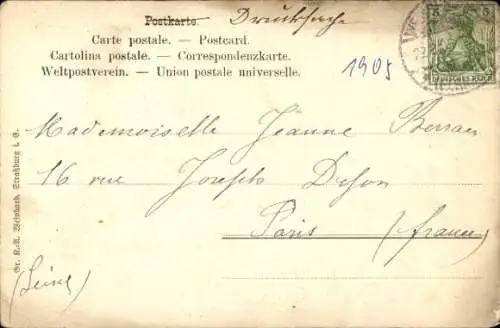 Postkarte. Drucksache
Carte postale. — Postcard.
Cartolina postale. — Correspondenzkarte.
Weltpostverein. — Union postale universelle.
1905
5 5
DEUTSCHES REICH
Mademoiselle Jeanne
16 rue Joseph Dijon
Paris (France)
(Seine)
Gr. K.-A. Weinhark, Straßburg i. E.